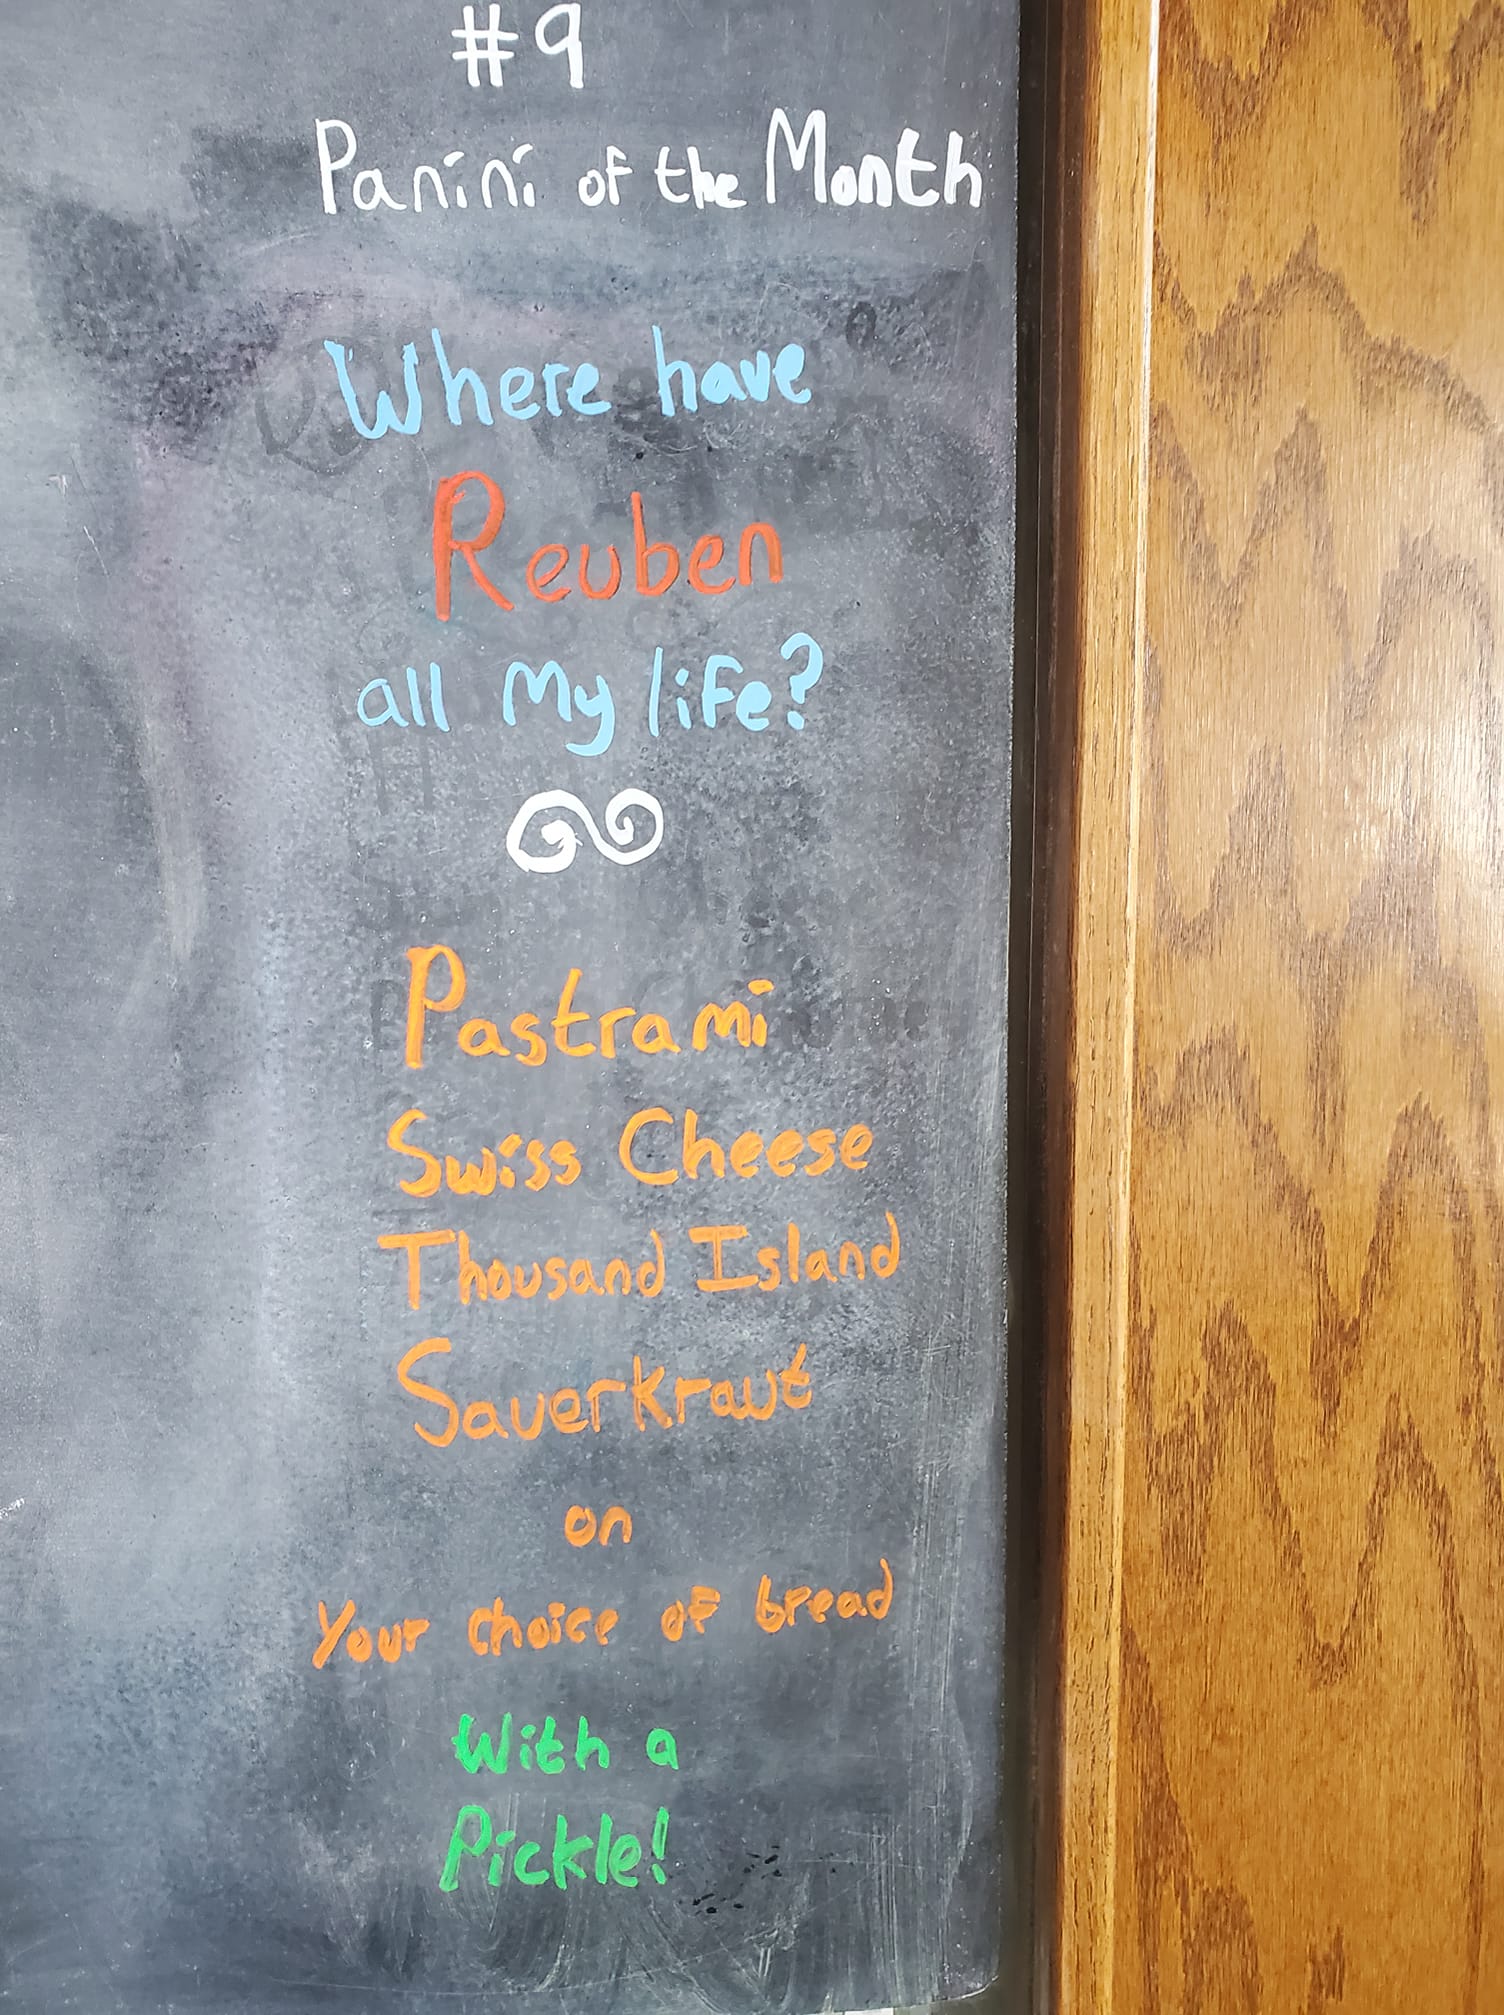 #9
Panini of the Month
Where have
Reuben
all my life?
Pastrami
Swiss Cheese
Thousand Island
Sauerkraut
on
Your choice of bread
With a
Pickle!